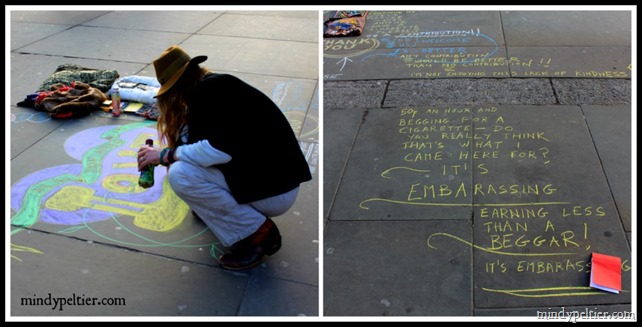 mindypeltier.com
CONTRIBUTION!!
WELCOME
BETTER
ANY CONTRIBUTION
WOULD BE BETTER
THAN NO CONTRIBUTION!!
I'M NOT ENJOYING THIS LACK OF KINDNESS
50p AN HOUR AND
BEGGING FOR A
CIGARETTE – DO
YOU REALLY THINK
THAT'S WHAT I
CAME HERE FOR?
IT'S
EMBARASSING
EARNING LESS
THAN A
BEGGAR!
IT'S EMBARASSING
mindypeltier.com